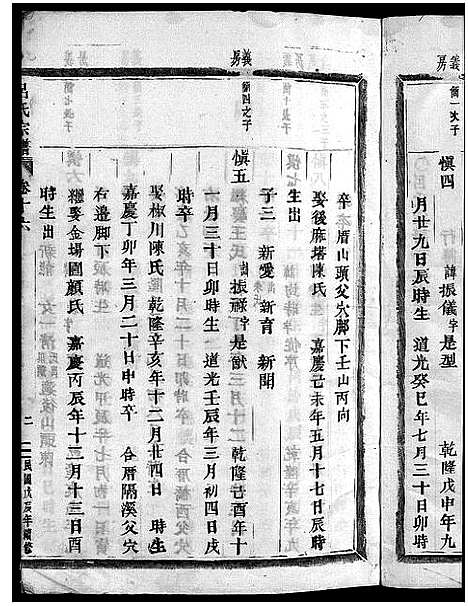 義房
簡一次子
慎四 諱振儀字是型 乾隆戊申年九
月廿九日辰時生 道光癸巳年七月三十日卯時
義房
卒 厝山頭父穴脚下壬山丙向
娶後麻塔陳氏 嘉慶己未年五月十七日辰時
生出
子三 新愛 新育 新開
簡四之子
慎五 諱振祿字是猷 乾隆己酉年十
一月三十日卯時生 道光壬辰年三月初四日戌
時卒
娶椒川陳氏 乾隆辛亥年十二月廿四日 時生
嘉慶丁卯年三月二十日申時卒 合厝隔溪父穴
右邊脚下
繼娶金場圖顏氏 嘉慶丙辰年十二月十三日酉
時生出
呂氏宗譜 二 民國戊辰年續修